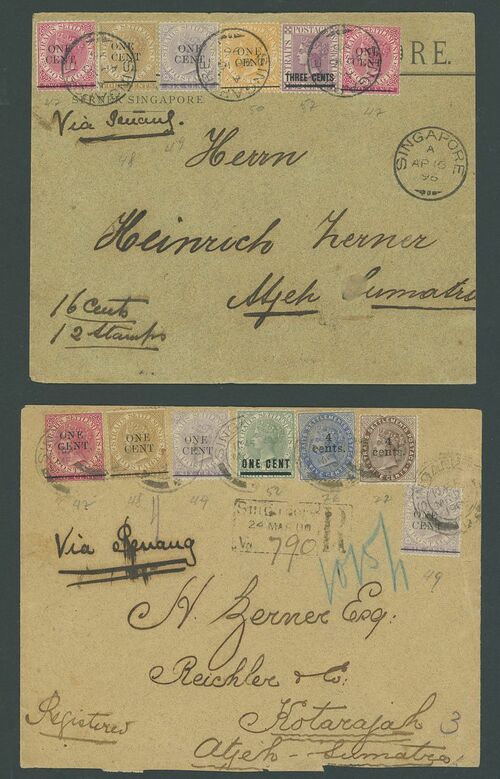 ONE CENT
ONE CENT
ONE CENT
ONE CENT
THREE CENTS
ONE CENT
R E.
ZERNER SINGAPORE
47
48
49
50
52
47
Via Penang.
SINGAPORE
A
AP 16
96
Herrn
Heinrich Zerner
Atjeh Sumatra
16 Cents
12 Stamps
STRAITS SETTLEMENTS
ONE CENT
ONE CENT
ONE CENT
ONE CENT
4 cents.
4 cents.
ONE CENT
47
48
49
52
49
SINGAPORE
R
24 MAR
No 790
Via Penang
H. Zerner Esq:
Reichler & Co:
Kotarajah
3
Registered
Atjeh - Sumatra